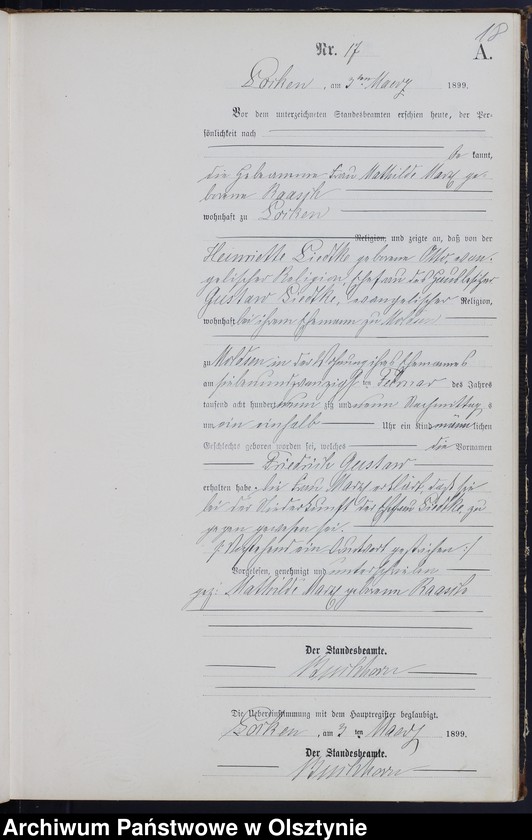 18
Nr. 17
A.
Lorken, am 3ten Maerz 1899.
Vor dem unterzeichneten Standesbeamten erschien heute, der Per-
sönlichkeit nach
be kannt,
die Hebeamme Frau Mathilde Marx ge-
borene Raasch
wohnhaft zu Lorken
Religion, und zeigte an, daß von der
Heinriette Liedtke geborene Otto, evan-
gelischer Religion, Ehefrau des
Gustav Liedtke, evangelischer Religion,
wohnhaft bei ihrem Ehemann zu Molden
zu Molden in der Wohnung ihres Ehemannes
am siebenundzwanzigsten Februar des Jahres
tausend acht hundert neun zig und neun Nachmittag s
um ein einhalb Uhr ein Kind männ lichen
Geschlechts geboren worden sei, welches die Vornamen
Friedrich Gustav
erhalten habe. Die Frau Marx erklärt, daß sie
bei der Niederkunft der Ehefrau Liedtke, zu
gegen gewesen sei.
Vorstehend ein Druckwort gestrichen
Vorgelesen, genehmigt und unterschrieben
gez: Mathilde Marx geborene Raasch
Der Standesbeamte.
Die Uebereinstimmung mit dem Hauptregister beglaubigt.
Lorken, am 3 ten Maerz 1899.
Der Standesbeamte.
Archiwum Państwowe w Olsztynie